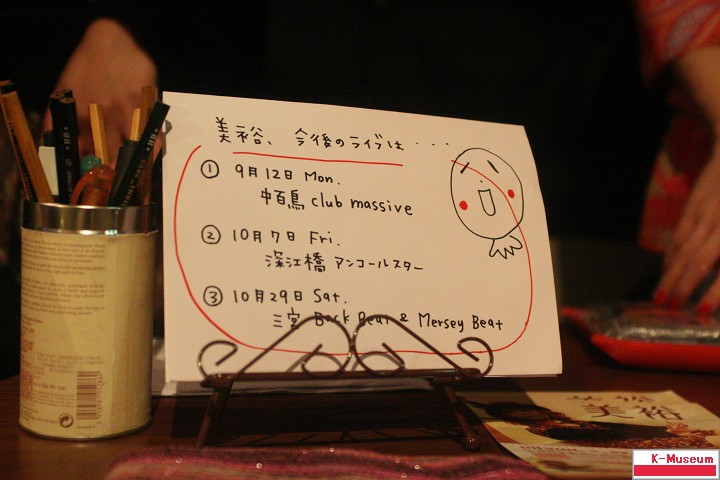 美裕、今後のライブは・・・
① 9月12日 Mon.
中百鳥 club massive
② 10月7日 Fri.
深江橋 アンコールスター
③ 10月29日 Sat.
三宮 Back Beat & Mersey Beat
美裕
HB
K-Museum